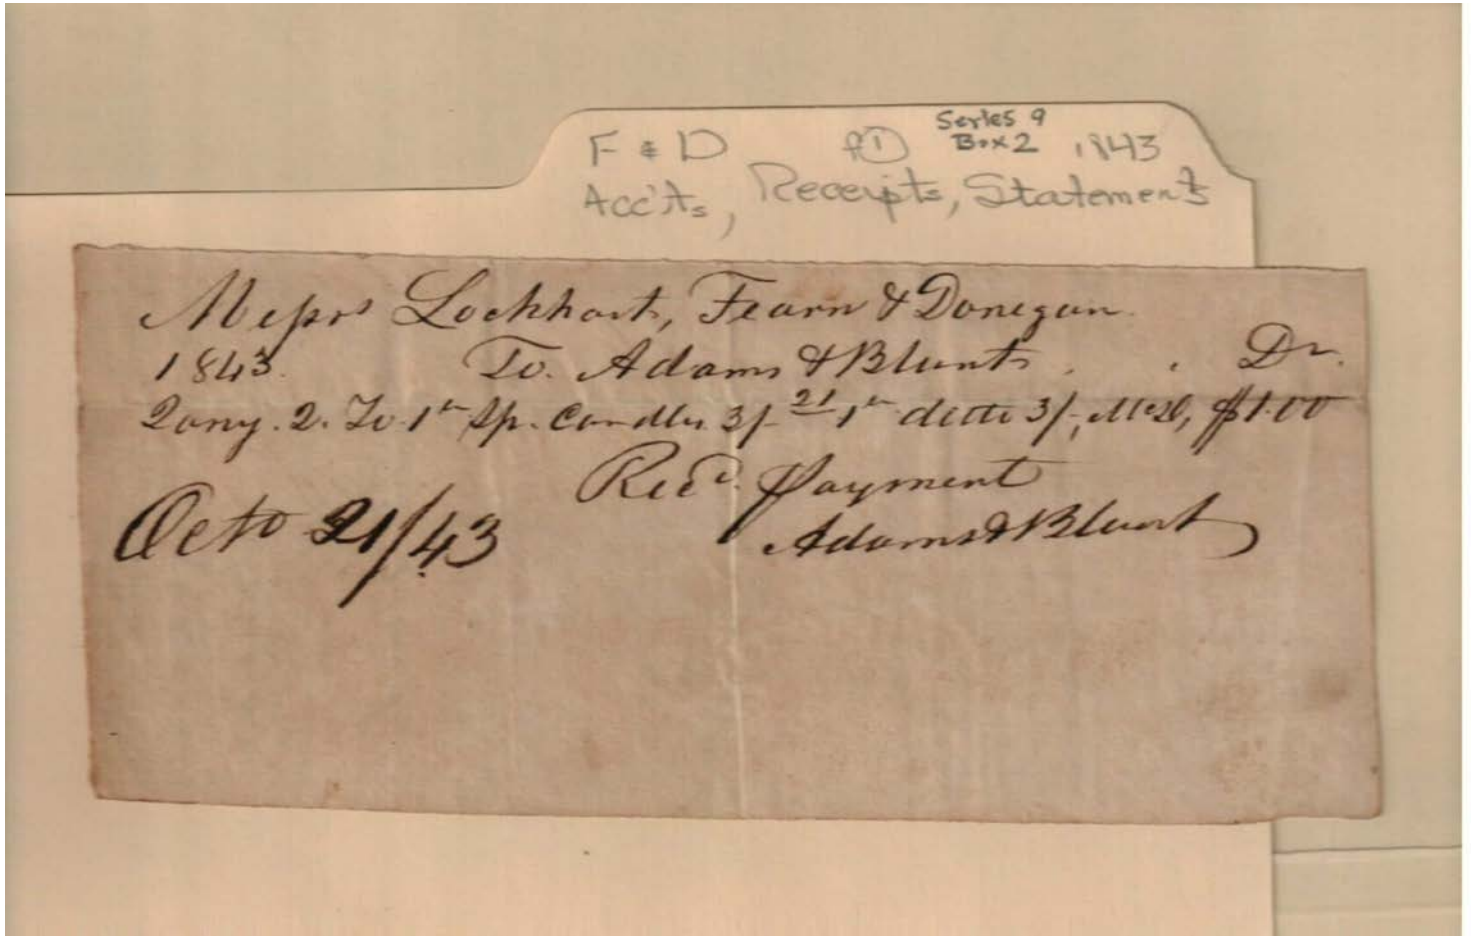 F & D f① Series 9 Box 2 1843
Acc'ts, Receipts, Statements
Messrs Lockhart, Fearn & Donegan.
1843. To. Adams & Blunt. . Dr.
Jany. 2. To 1 lb Sp. Candles 3/- 21 1 lb ditto 3/-, $1.00
Recd. Payment
Octo 21/43 Adams & Blunt